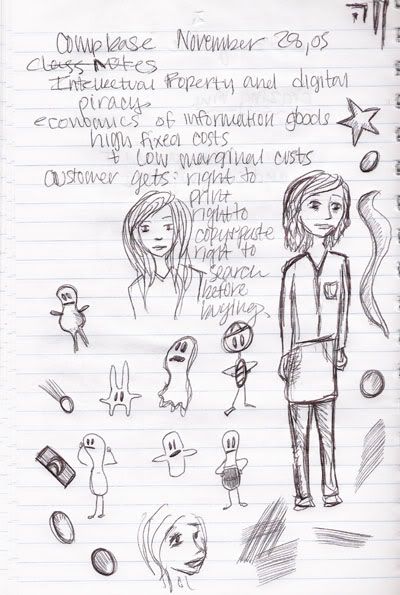 November 28,05
Class Notes
Intellectual Property and digital
piracy
economics of information goods
high fixed costs
+ low marginal costs
customer gets: right to
print
right to
copy+paste
right to
search
before
buying